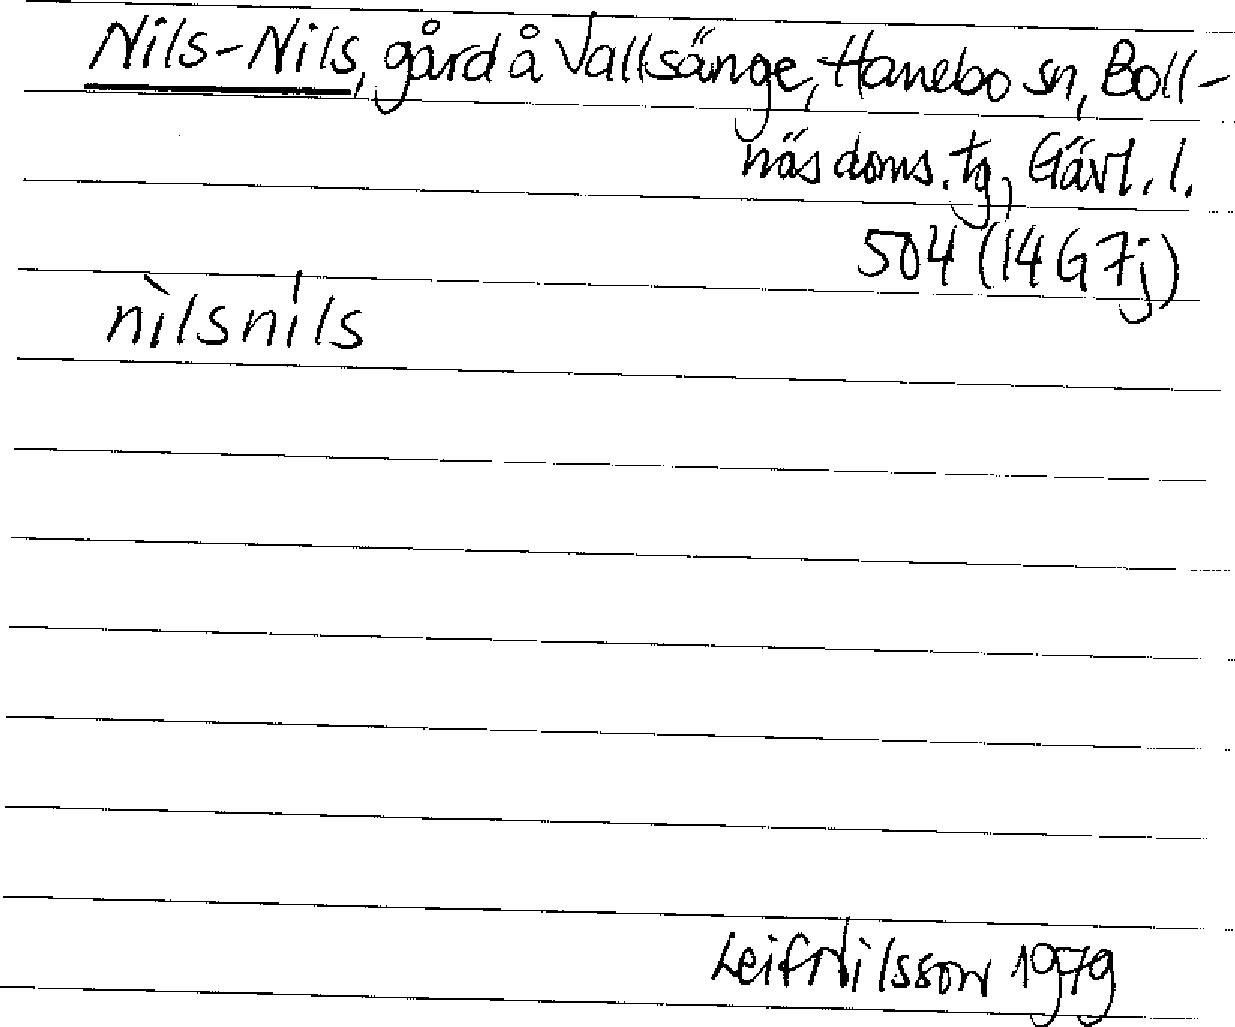 Nils-Nils, gård å Vallsänge, Hanebo sn, Boll-
näs doms. tg, Gävl. l.
504 (14G7j)
nìlsníls
Leif Nilsson 1979